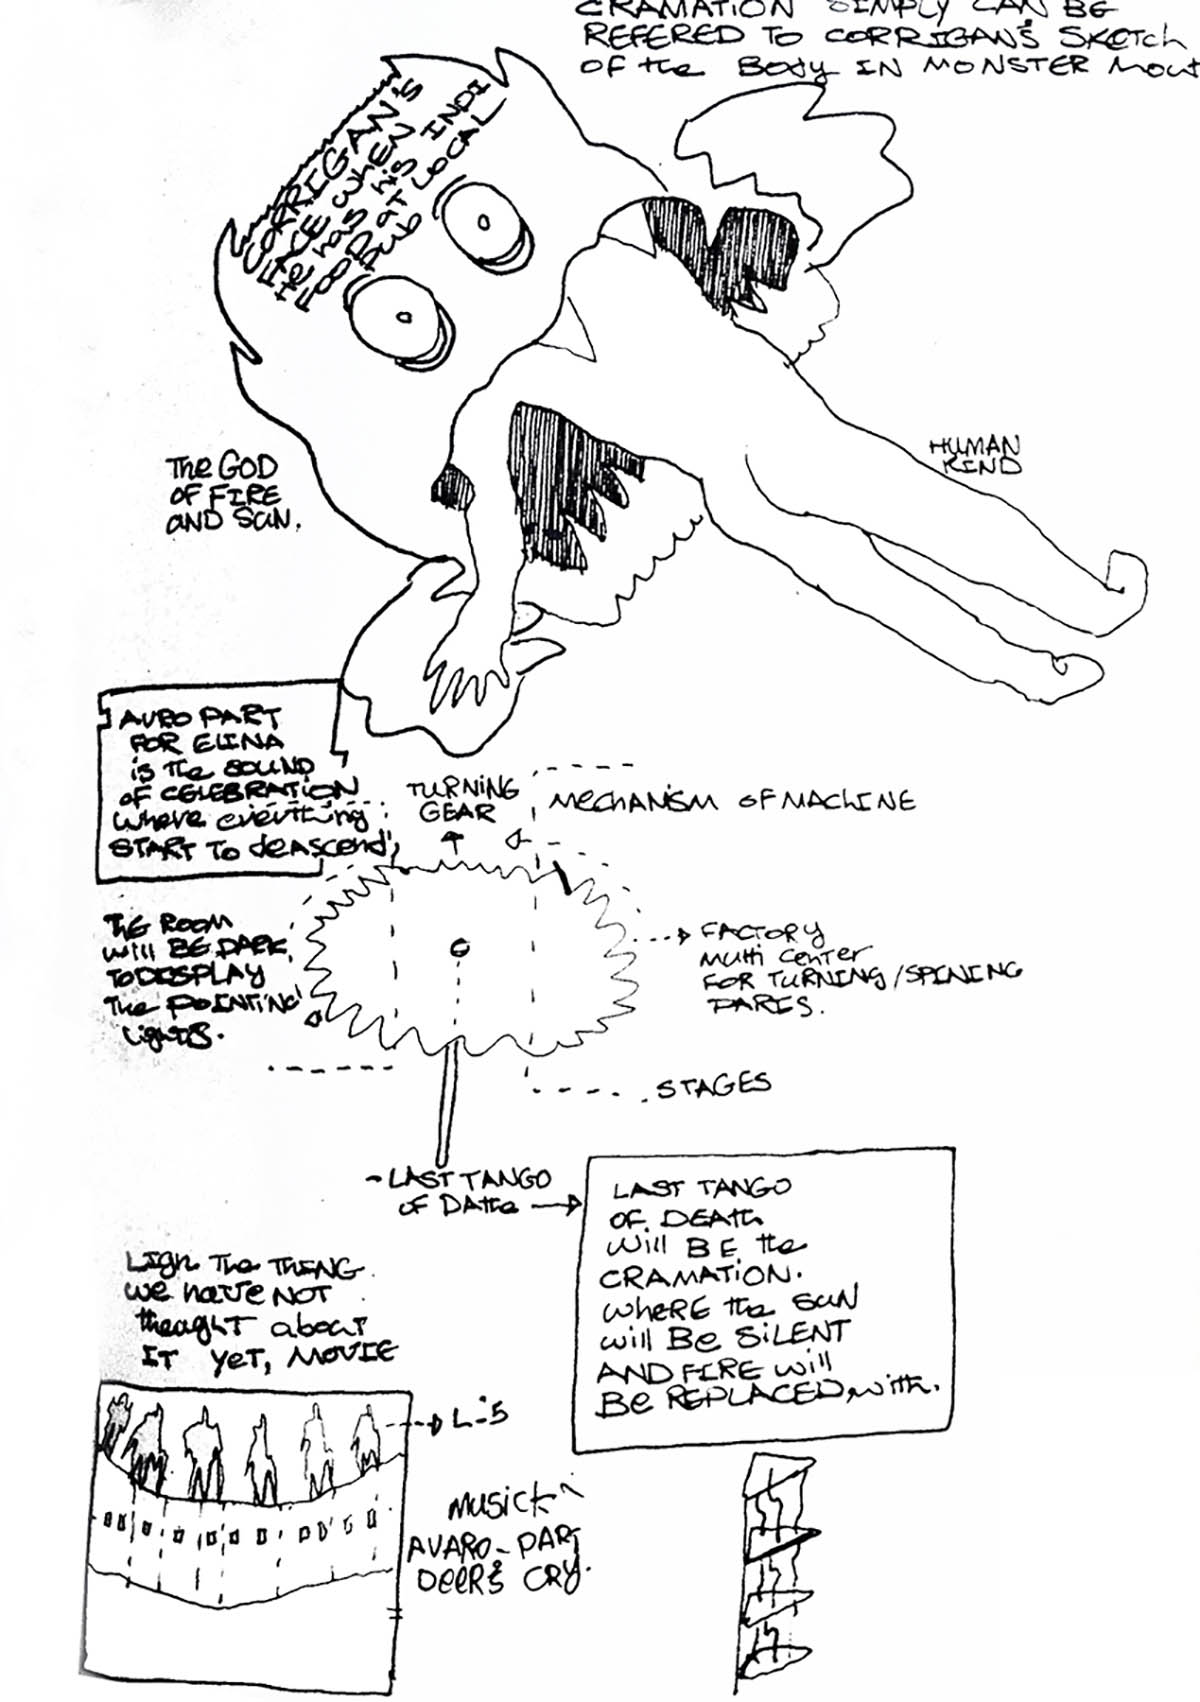 CRAMATION SIMPLY CAN BE
REFERED TO CORRIGAN'S SKETCH
OF the BODY IN MONSTER MOUT
CORRIGAN'S
FACE WHEN
He has
FOOD at his INDI
PUB LOCAL
The GOD
OF FIRE
AND SUN.
HUMAN
KIND
AVRO PART
FOR ELINA
is The SOUND
OF CELEBRATION
where everithing
START TO deAscend,
TURNING
GEAR
MECHANiSM OF MACHINE
The ROOM
will BE DARK,
TO DESPLAY
The POINTING
LIGHTS.
FACTORY
Multi Center
FOR TURNING/SPINING
PARTS.
STAGES
- LAST TANGO
OF DAthe
LAST TANGO
OF DEATh
will BE the
CRAMATiON.
wheRE the SUN
will Be SiLENT
AND FIRE will
Be REPLACED, with.
LIGh The THING
we have NOT
theaghT about
IT yeT, MOVIE
L-5
Musick
AVARO-PART
DEER'S CRY.